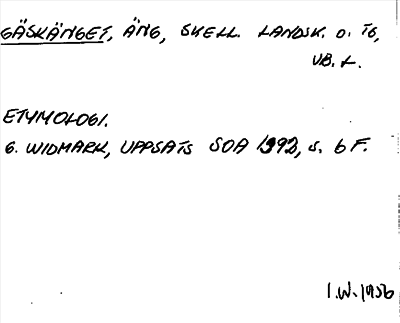 GÄSKÄNGET, ÄNG, SKELL. LANDSK. O. TG,
VB. L.
ETYMOLOGI.
G. WIDMARK, UPPSATS SOA 1392, S. 6 F.
I.W. 1956